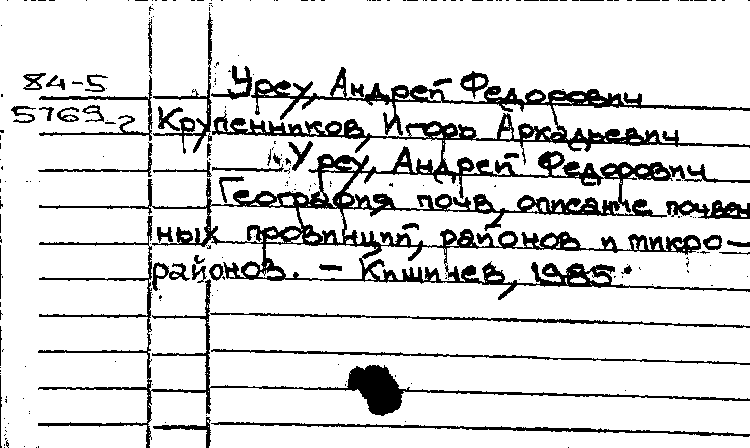 84-5
5769-2
Урсу, Андрей Федорович
Крупенников, Игорь Аркадьевич
Урсу, Андрей Федорович
География почв, описание почвен
ных провинций, районов и микро-
районов. - Кишинев, 1985.